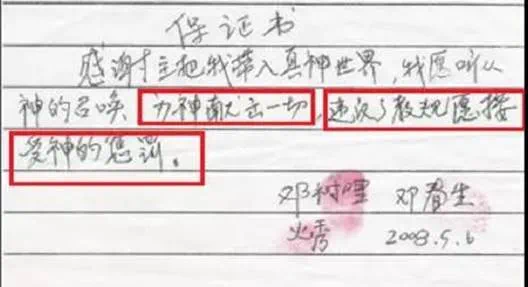 保证书
感谢主把我带入真神世界,我愿听从
神的召唤 为神献出一切,违汉了教规愿接
受神的惩罚。
邓树 邓春生
火秀 2008.5.6